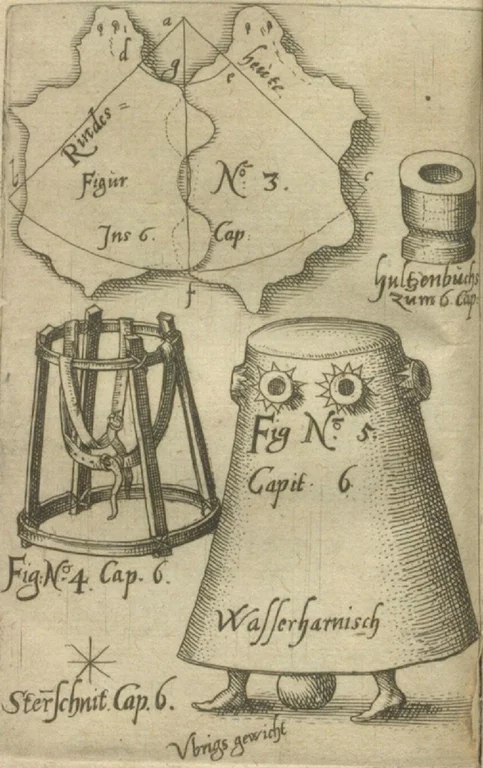 a
d g e
Rindes= heute.
Figur N.º 3.
b c
Ins 6. Cap.
f
hultzenbuchs
zum 6. Cap:
Fig N.º 5.
Capit 6.
Fig: N.º 4. Cap. 6.
Wasserharnisch
Ster̃schnit. Cap. 6.
Vbrigs gewicht